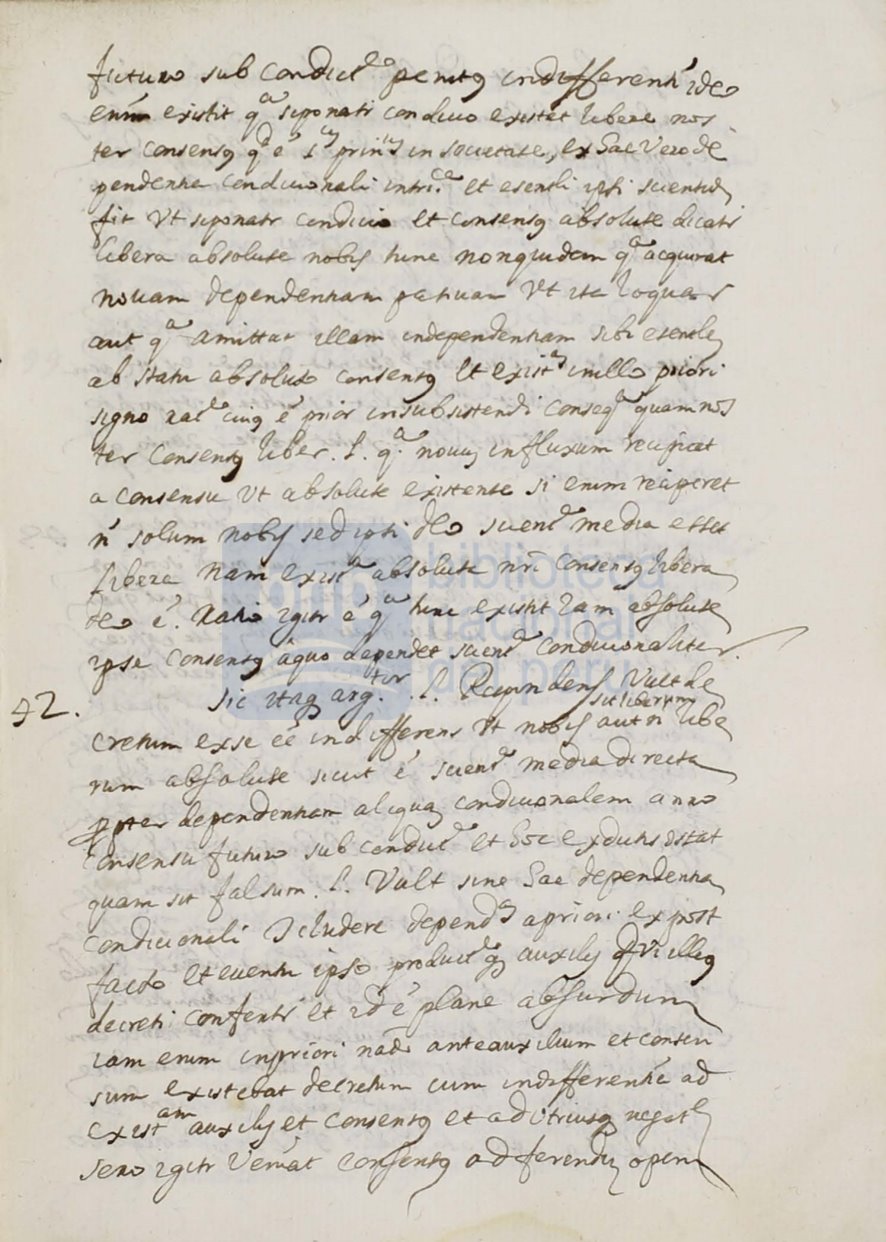 futuro sub condict.e penitq indifferenti ideo
enim existit qa si ponatr condicio existet libere nos
ter consensq qd ê in societate, ex hac vero de
pendentia condicionali intrica et esentli ipsi scientię
fit vt si ponatr condicio et consensq absolute dicatr
libera absolute nobis hinc non quidem qa acquirat
nouam dependentiam passiuam vt ita loquar
aut qa amittat illam independentiam sibi esentlẽ
ab statu absoluto consensq et in illo priori
signo cuiq ê prior in subsistendi conseq quam nos
ter consensq liber. l. qa nouũ influxum recipiat
a consensu vt absolute existente si enim reciperet
n solum nobis sed ipsi deo scient.a media esset
libera nam absolute nri consensq libera
deo ê. Ratio igitr ê qa hinc existit iam absolute
ipse consensq a quo dependet scient.a condicionaliter.
42. Sic itaq argtur. l. Respondens vult de
cretum ex se eê indifferens vt nobis sit liberum aut n libe
rum absolute sicut ê scient.a media directa
propter dependentiam aliquã condicionalem a nro
consensu futuro sub condict.e et hoc ex dictis cstat
quam sit falsum. l. Vult sine hac dependentia
condicionali a priori ex post
facto et euentu ipso product.e auxilij
decreti consensq et id ê plane absurdum
iam enim in priori ante auxilium et consen
sum existebat decretum cum indifferentia ad
existam auxilij et consensq et ad vtriusq negat.
sero igitr veniat consensq ad ferendã opem